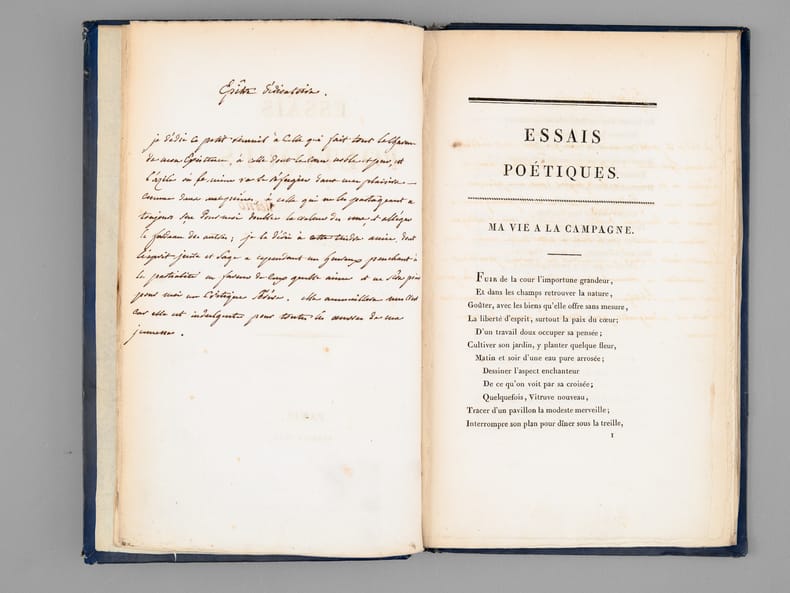 Epître dédicatoire.
je dédie ce petit recueil à celle qui fait tout le charme
de mon existence, à celle dont le cœur noble et pur, est
l'azile où le mien va se réfugier dans mes plaisirs
comme dans mes peines, à celle qui en les partageant a
toujours su pour moi doubler la valeur des uns, et alléger
le fardeau des autres; je le dédie à cette tendre amie, dont
l'esprit juste et sage a cependant un heureux penchant à
la partialité en faveur de ceux qu'elle aime et ne sera point
pour moi un critique sévère. elle accueillera
car elle est indulgente pour toutes les erreurs de ma
jeunesse.
ESSAIS
POÉTIQUES.
MA VIE A LA CAMPAGNE.
FUIR de la cour l'importune grandeur,
Et dans les champs retrouver la nature,
Goûter, avec les biens qu'elle offre sans mesure,
La liberté d'esprit, surtout la paix du cœur;
D'un travail doux occuper sa pensée;
Cultiver son jardin, y planter quelque fleur,
Matin et soir d'une eau pure arrosée;
Dessiner l'aspect enchanteur
De ce qu'on voit par sa croisée;
Quelquefois, Vitruve nouveau,
Tracer d'un pavillon la modeste merveille;
Interrompre son plan pour dîner sous la treille,
1